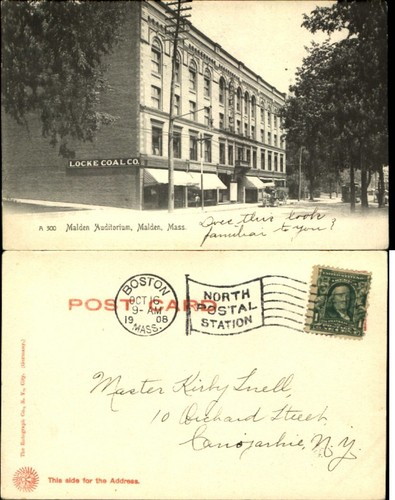 LOCKE COAL CO.
A 300 Malden Auditorium, Malden, Mass.
Does this look
familiar to you?
POST CARD
BOSTON
OCT 16
9-AM
1908
MASS.
NORTH
POSTAL
STATION
Master Kirby Snell,
10 Orchard Street,
Canojarhie, N.Y.
The Rotograph Co., N. Y. City. (Germany.)
This side for the Address.